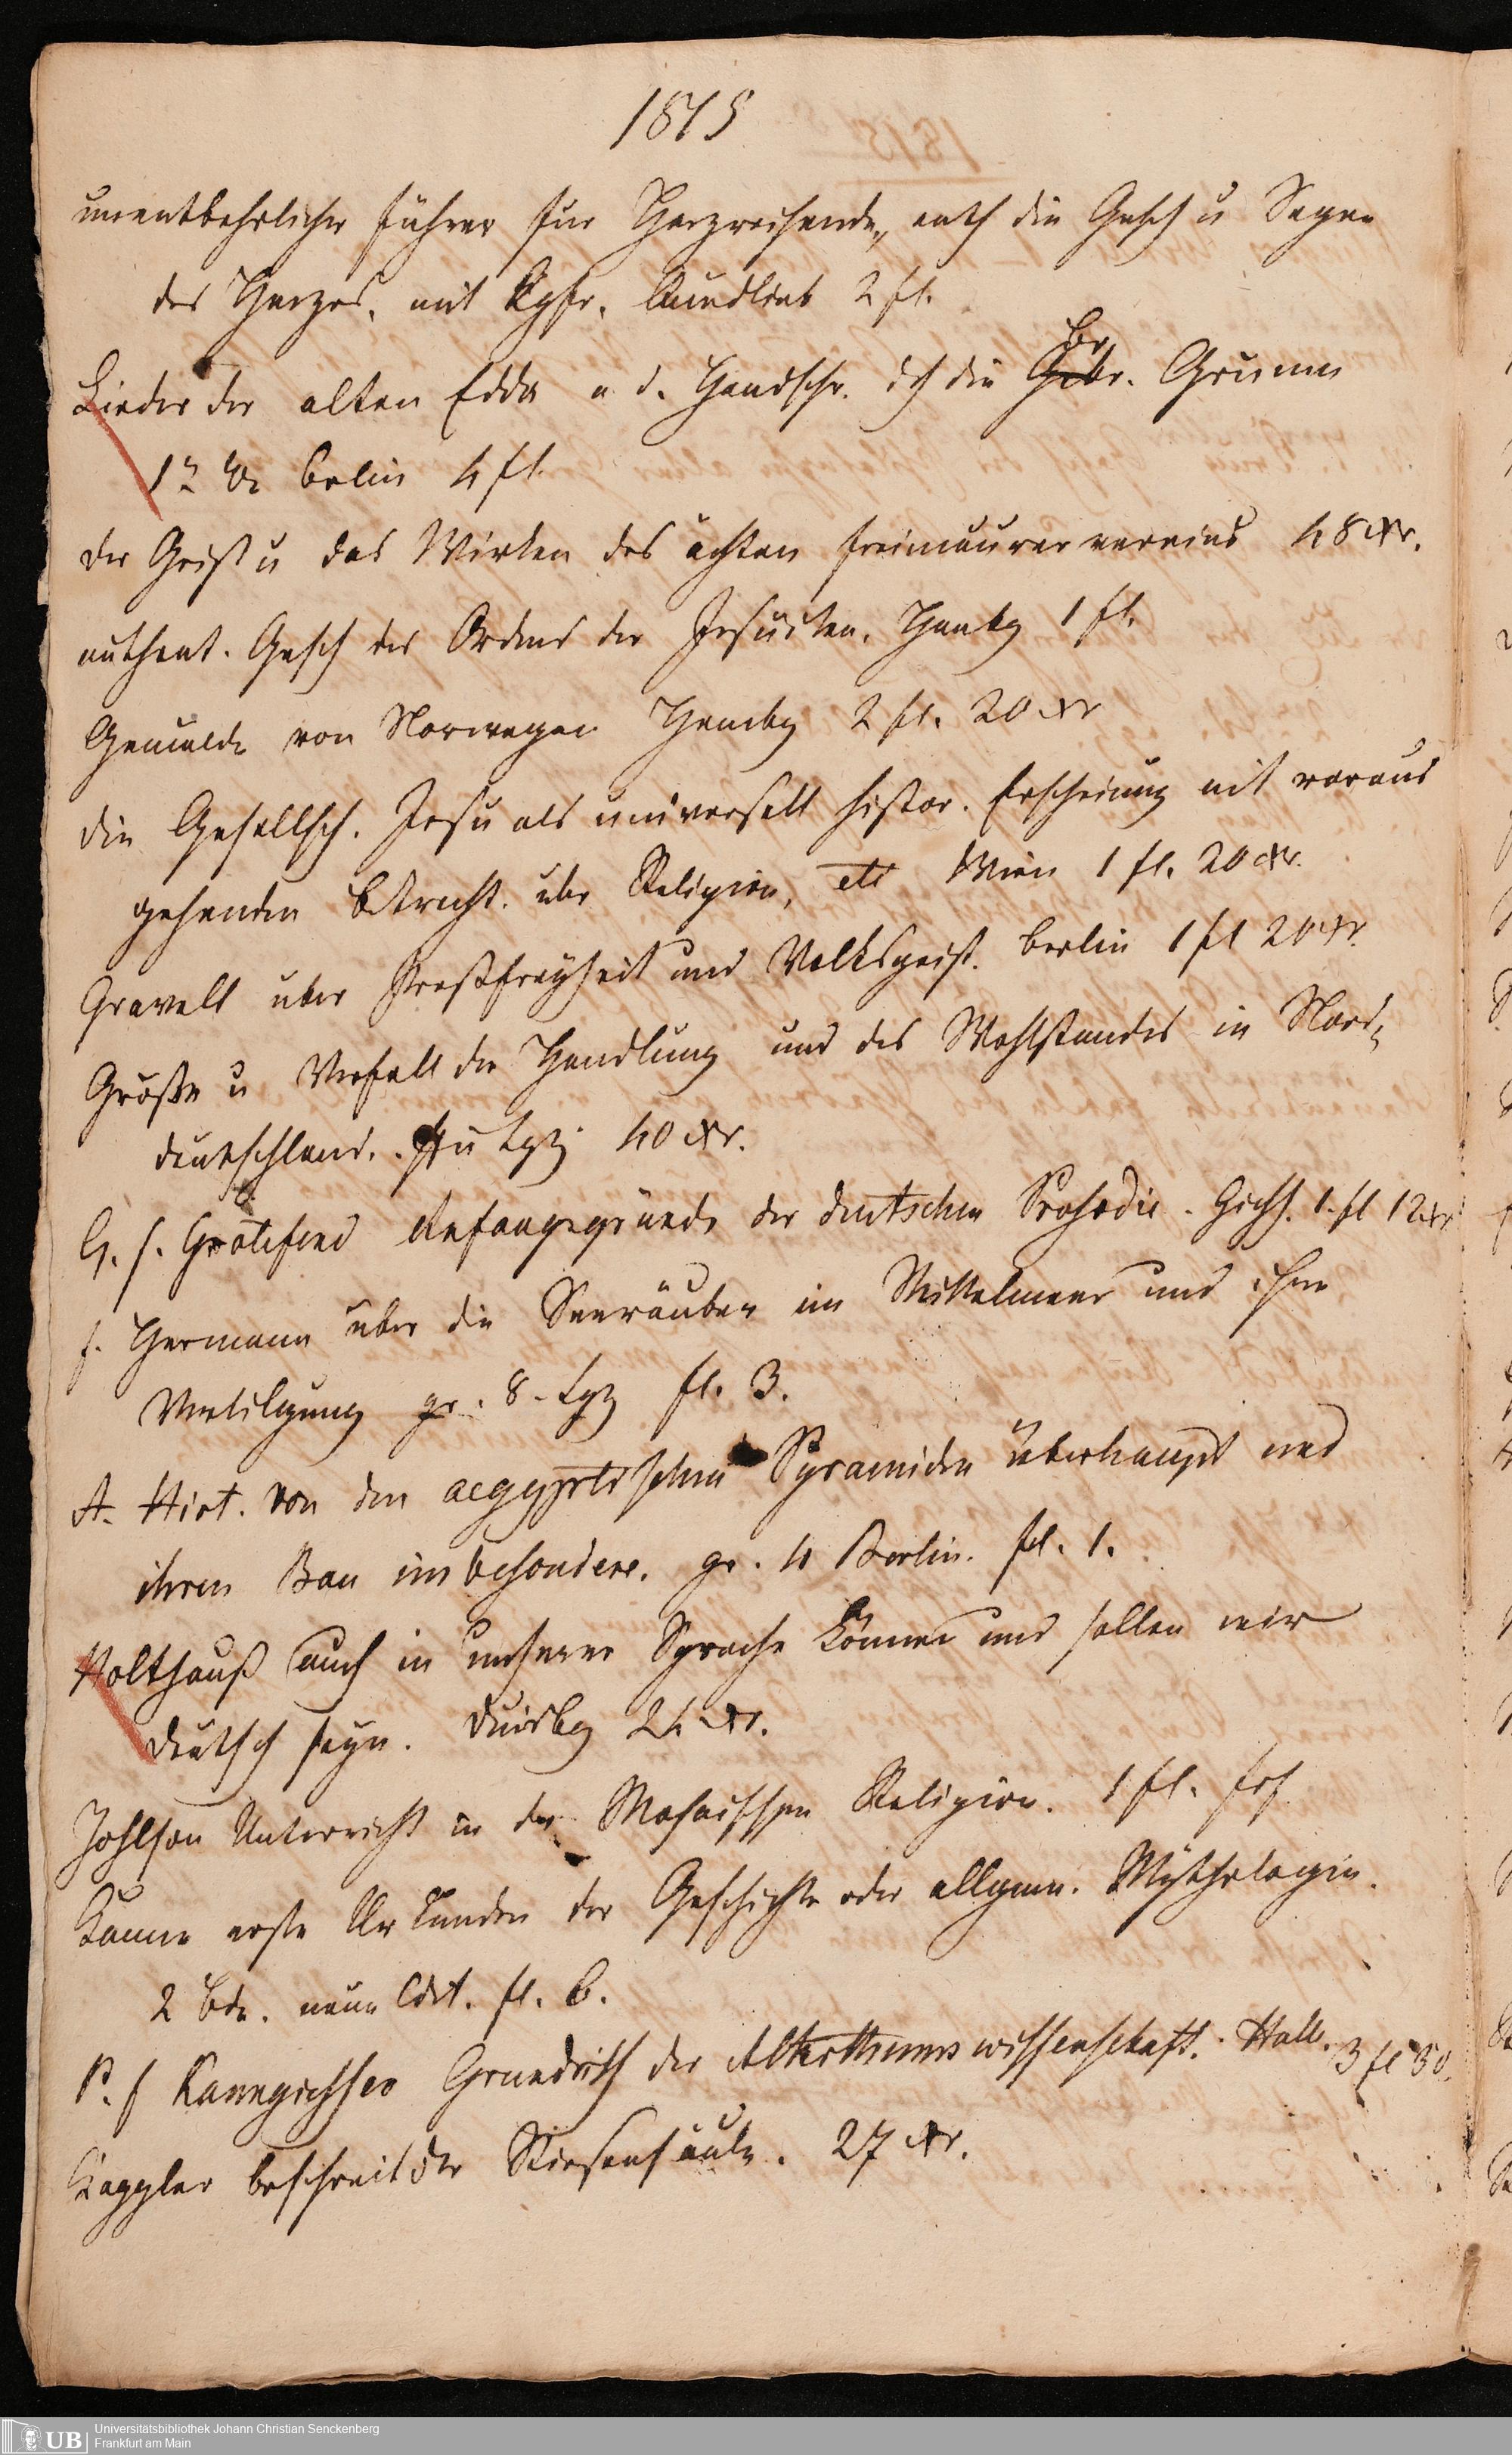 1815
unentbehrlicher Führer für Harzreisende, enth die Gesch u Sagen
des Harzes, mit Kpfr. Quedlinb 2 fl.
Lieder der alten Edda a d. Handschr. dch die Gebr. Grimm
Br
1r Bd Berlin 4 fl.
der Geist u das Wirken des ächten Freimaurervereins 48 xr.
authent. Gesch des Ordens der Jesuiten. Hambg 1 fl.
Gemälde von Norwegen Hambg 2 fl. 20 xr
die Gesellsch. Jesu als universell histor. Erscheinung mit voraus
gehenden Betracht. über Religion, etc Wien 1 fl. 20 xr.
Gravell über Preßfreyheit und Volksgeist. Berlin 1 fl 20 xr.
Größe u Verfall der Handlung und des Wohlstandes in Nord-
deutschland. Lpz 40 xr.
G. F. Grotefend Anfangsgründe der deutschen Prosodie. Giess. 1. fl 12 xr
F. Hermann über die Seeräuber im Mittelmeer und ihre
Vertilgung gr. 8 - Lpz fl. 3.
A. Hirt. von den aegyptischen Pyramiden überhaupt und
ihrem Bau insbesondere. gr. 4 Berlin. fl. 1.
Holthauß auch in unserer Sprache können und sollen wir
deutsch seyn. Duisbg 24 xr.
Johlson Unterricht in der Mosaischen Religion. 1 fl. Frf
Kanne erste Urkunden der Geschichte oder allgem. Mythologie.
2 Bde. neue Edit. fl. 6.
P. F Kannegiesser Grundriß der Alterthumswissenschaft. Hall. 3 fl 30.
Kappler beschreib der Riesensäule. 27 xr.
UB Universitätsbibliothek Johann Christian Senckenberg
Frankfurt am Main